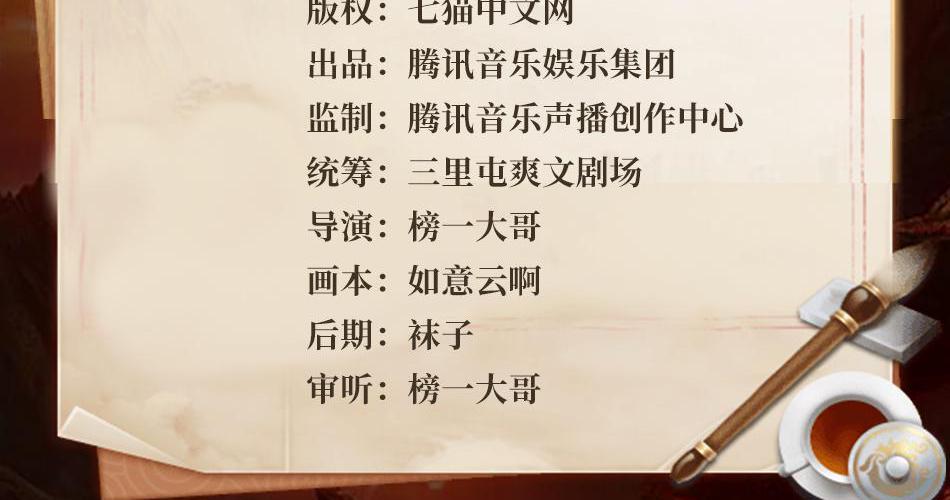 版权：七猫中文网
出品：腾讯音乐娱乐集团
监制：腾讯音乐声播创作中心
统筹：三里屯爽文剧场
导演：榜一大哥
画本：如意云啊
后期：袜子
审听：榜一大哥